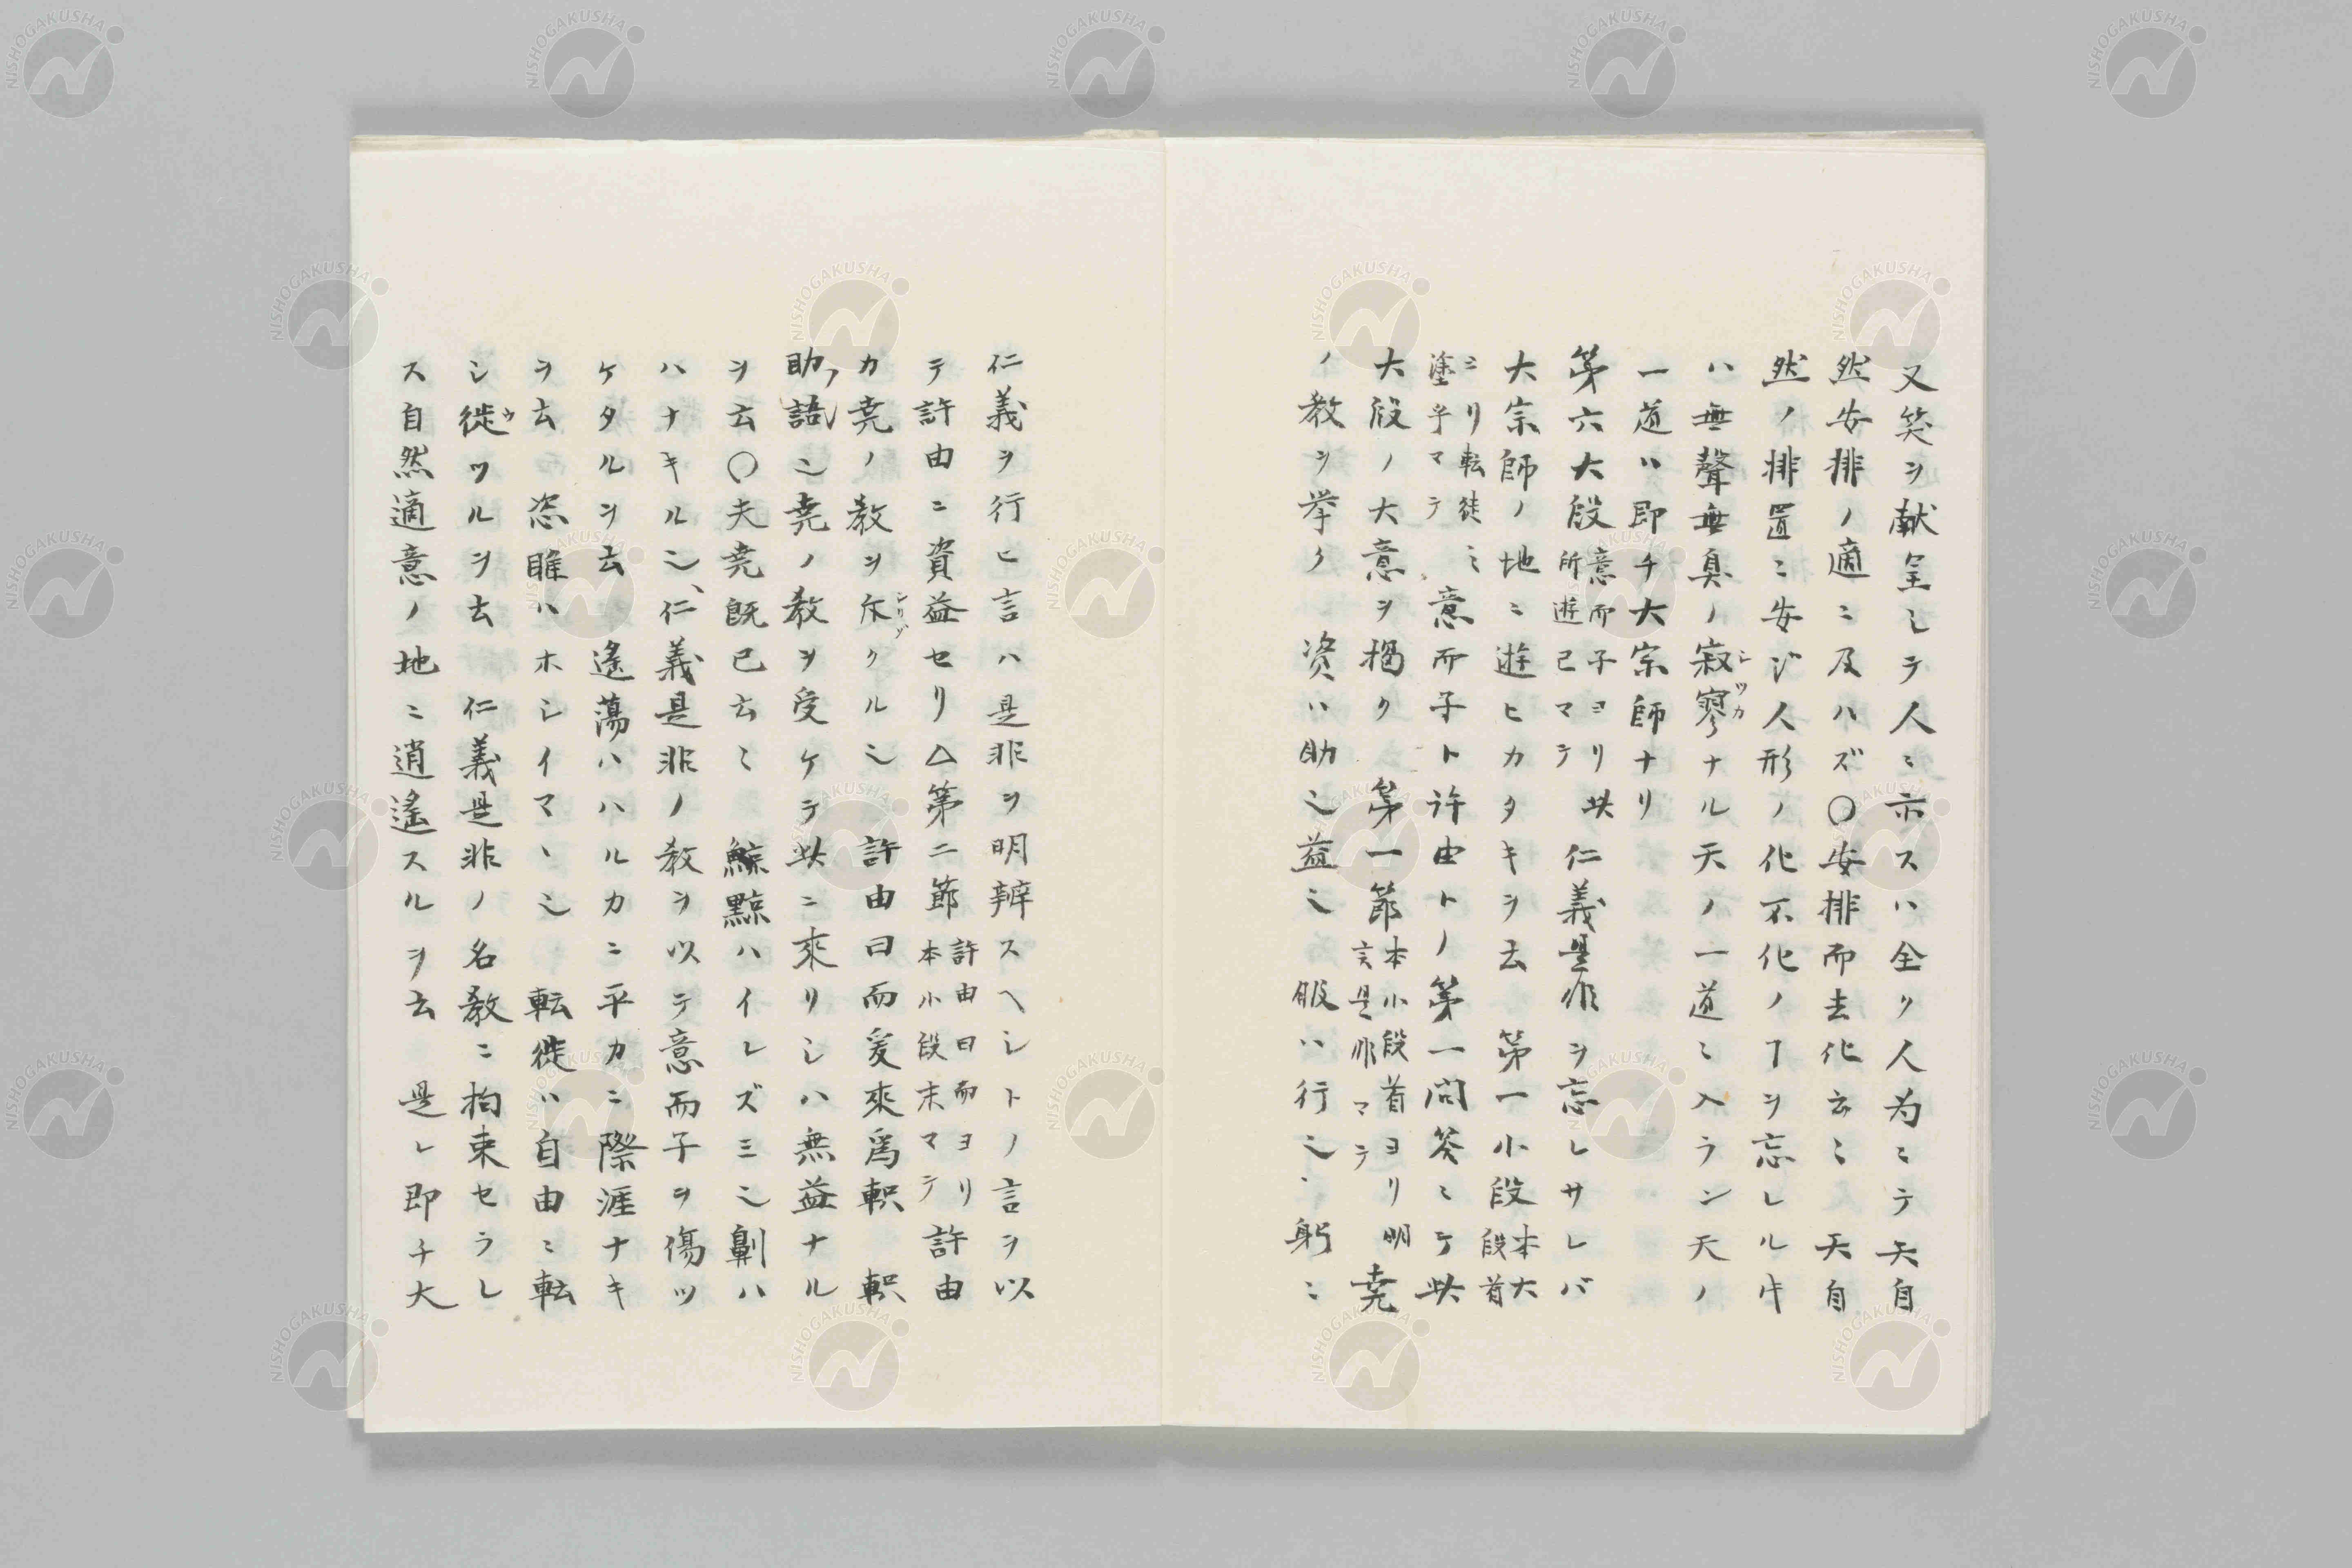 又笑ヲ献呈シテ人ニ示スハ全ク人為ニテ天自
然安排ノ適ニ及ハズ〇安排而去化云ミ 天自
然ノ排置ニ安ジ人形ノ化不化ノヿヲ忘レル牛
ハ無聲無臭ノ寂寥ナル天ノ一道ミ入ラン天ノ
シツカ
一道ハ即チ大宗師ナリ
第六大段
意而子ヨリ此
所遊已マテ
仁義是非ヲ忘レサレバ
大宗師ノ地ニ遊ヒカタキヲ去 第一小段
本大
段首
ニリ転徒ミ
塗乎マテ
意而子ト许由トノ第一問答ミケ此
大段ノ大意ヲ揭ク 第一節
本小段首ヨリ明
言是非マテ
堯
ノ教ヲ挙ク 資ハ助之益之 服ハ行之 躬ニ
仁義ヲ行ヒ言ハ是非ヲ明辨スヘシトノ言ヲ以
テ許由ニ資益セリ△第二節
許由曰而ヨリ
本小段末マテ
許由
カ堯ノ教ヲ斥クルシ 許由曰而爰來爲軹 軹
助ノ語シ堯ノ教ヲ受ケテ此ニ來リシハ無益ナル
ヲ云〇夫堯既已云ミ 鯨黥ハイレズミ之劓ハ
ハナキルシ、仁義是非ノ教ヲ以テ意而子ヲ傷ツ
ケタルヲ去 遙蕩ハハルカニ平カニ際涯ナキ
ヲ去 恣睢ハホシイマヽシ 転徙ハ自由ニ転
シ徙ウツルヲ去 仁義是非ノ名教ニ拘束セラレ
ス自然適意ノ地ニ逍遙スルヲ去 是レ即チ大
NISHOGAKUSHA